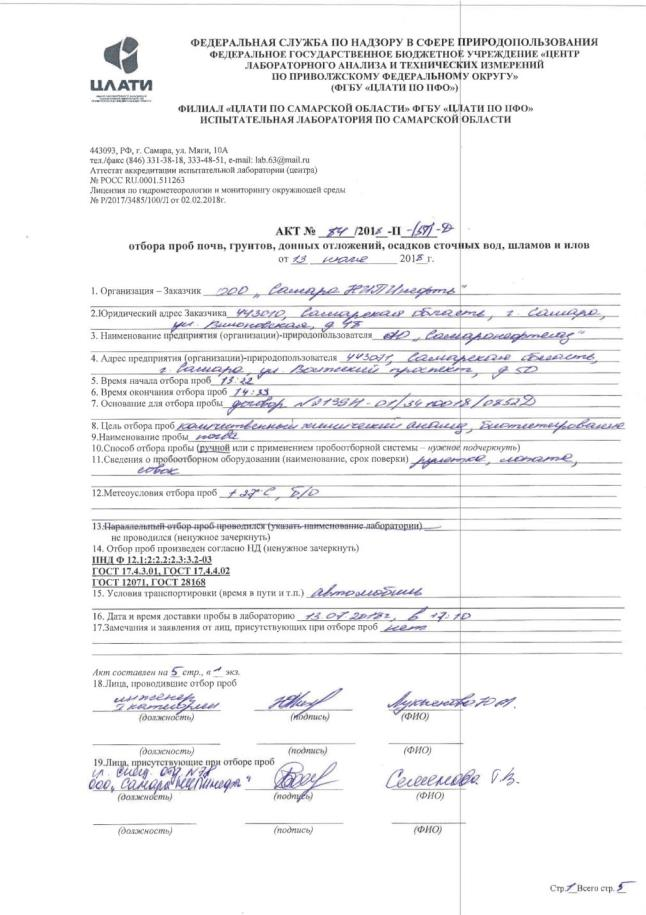 ФЕДЕРАЛЬНАЯ СЛУЖБА ПО НАДЗОРУ В СФЕРЕ ПРИРОДОПОЛЬЗОВАНИЯ
ФЕДЕРАЛЬНОЕ ГОСУДАРСТВЕННОЕ БЮДЖЕТНОЕ УЧРЕЖДЕНИЕ «ЦЕНТР
ЛАБОРАТОРНОГО АНАЛИЗА И ТЕХНИЧЕСКИХ ИЗМЕРЕНИЙ
ПО ПРИВОЛЖСКОМУ ФЕДЕРАЛЬНОМУ ОКРУГУ»
(ФГБУ «ЦЛАТИ ПО ПФО»)
ЦЛАТИ
ФИЛИАЛ «ЦЛАТИ ПО САМАРСКОЙ ОБЛАСТИ» ФГБУ «ЦЛАТИ ПО ПФО»
ИСПЫТАТЕЛЬНАЯ ЛАБОРАТОРИЯ ПО САМАРСКОЙ ОБЛАСТИ
443093, РФ, г. Самара, ул. Мяги, 10А
тел./факс (846) 331-38-18, 333-48-51, e-mail: lab.63@mail.ru
Аттестат аккредитации испытательной лаборатории (центра)
№ РОСС RU.0001.511263
Лицензия по гидрометеорологии и мониторингу окружающей среды
№ Р/2017/3485/100/Л от 02.02.2018г.
АКТ № 84 /2018 -П -(57)-Д
отбора проб почв, грунтов, донных отложений, осадков сточных вод, шламов и илов
от 13 июля 2018 г.
1. Организация – Заказчик ООО „Самара НИПИнефть"
2.Юридический адрес Заказчика 443010, Самарская область, г. Самара,
ул. Вилоновская, д 18
3. Наименование предприятия (организации)-природопользователя АО „Самаранефтегаз"
4. Адрес предприятия (организации)-природопользователя 443071, Самарская область,
г. Самара, ул. Волжский проспект, д 50
5. Время начала отбора проб 13:22
6. Время окончания отбора проб 14:33
7. Основание для отбора пробы договор
8. Цель отбора проб количественный химический анализ, биотестирование
9.Наименование пробы почва
10.Способ отбора пробы (ручной или с применением пробоотборной системы – нужное подчеркнуть)
11.Сведения о пробоотборном оборудовании (наименование, срок поверки) рулетка, лопата,
совок
12.Метеоусловия отбора проб +27°С, б/о
13.Параллельный отбор проб проводился (указать наименование лаборатории)
не проводился (ненужное зачеркнуть)
14. Отбор проб произведен согласно НД (ненужное зачеркнуть)
ПНД Ф 12.1:2:2.2:2.3:3.2-03
ГОСТ 17.4.3.01, ГОСТ 17.4.4.02
ГОСТ 12071, ГОСТ 28168
15. Условия транспортировки (время в пути и т.п.) Автомобиль
16. Дата и время доставки пробы в лабораторию 13.07.2018г, в 17:10
17.Замечания и заявления от лиц, присутствующих при отборе проб нет
Акт составлен на 5 стр., в 1 экз.
18.Лица, проводившие отбор проб
инженер
2 категории
Лукьянова Ю.А.
(должность) (подпись) (ФИО)
(должность) (подпись) (ФИО)
19.Лица, присутствующие при отборе проб
гл. спец. отд. №78
ООО „СамараНИПИнефть" Семенова Т.В.
(должность) (подпись) (ФИО)
(должность) (подпись) (ФИО)
Стр.1 Всего стр. 5